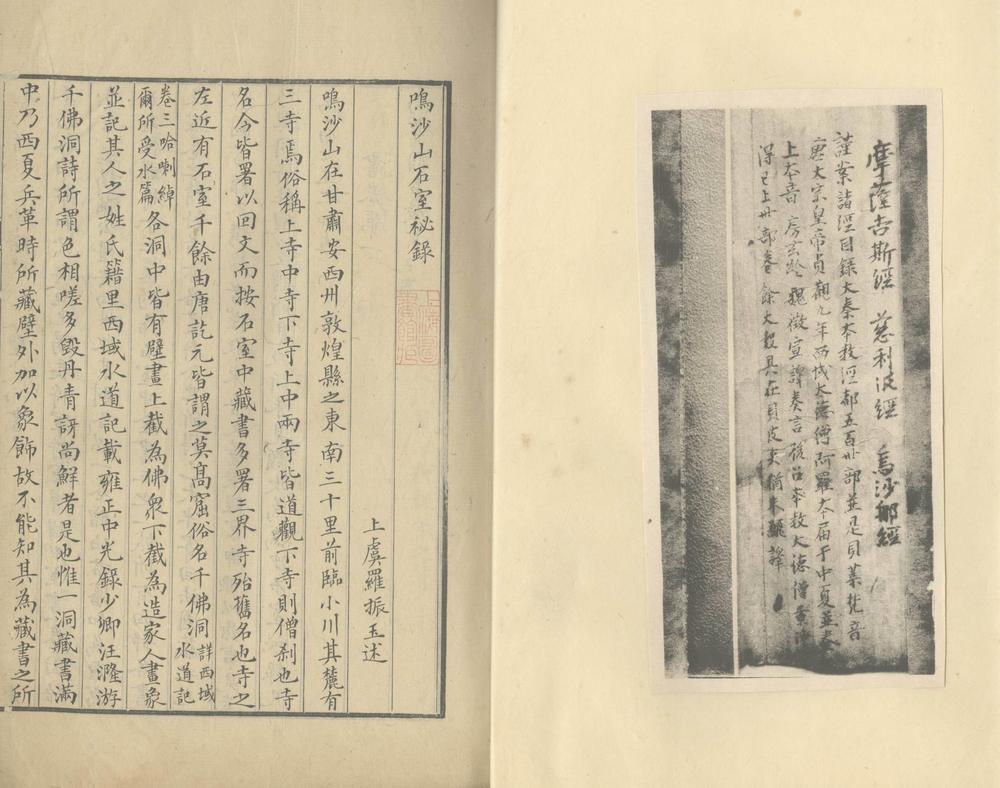 摩薩吉斯經 慈利波經 烏沙鄉經
謹案諸經目錄大秦本教經都五百卅部並是貝葉梵音
唐太宗皇帝貞觀九年西域大德僧阿羅本屆于中夏並奏
上本音房玄齡魏徵宣譯奏言後召本教大德僧景淨
得已上卅部卷餘大數具在貝皮夾猶未翻譯
鳴沙山石室祕錄
上虞羅振玉述
鳴沙山在甘肅安西州敦煌縣之東南三十里前臨小川其麓有
三寺焉俗稱上寺中寺下寺上中兩寺皆道觀下寺則僧刹也寺
名今皆署以回文而按石室中藏書多署三界寺殆舊名也寺之
左近有石室千餘由唐訖元皆謂之莫高窟俗名千佛洞詳西域水道記
卷三哈喇淖爾所受水篇各洞中皆有壁畫上截為佛衆下截為造家人畫象
並記其人之姓氏籍里西域水道記載雍正中光錄少卿汪漋游
千佛洞詩所謂色相嗟多毀丹青訝尚鮮者是也惟一洞藏書滿
中乃西夏兵革時所藏壁外加以象飾故不能知其為藏書之所